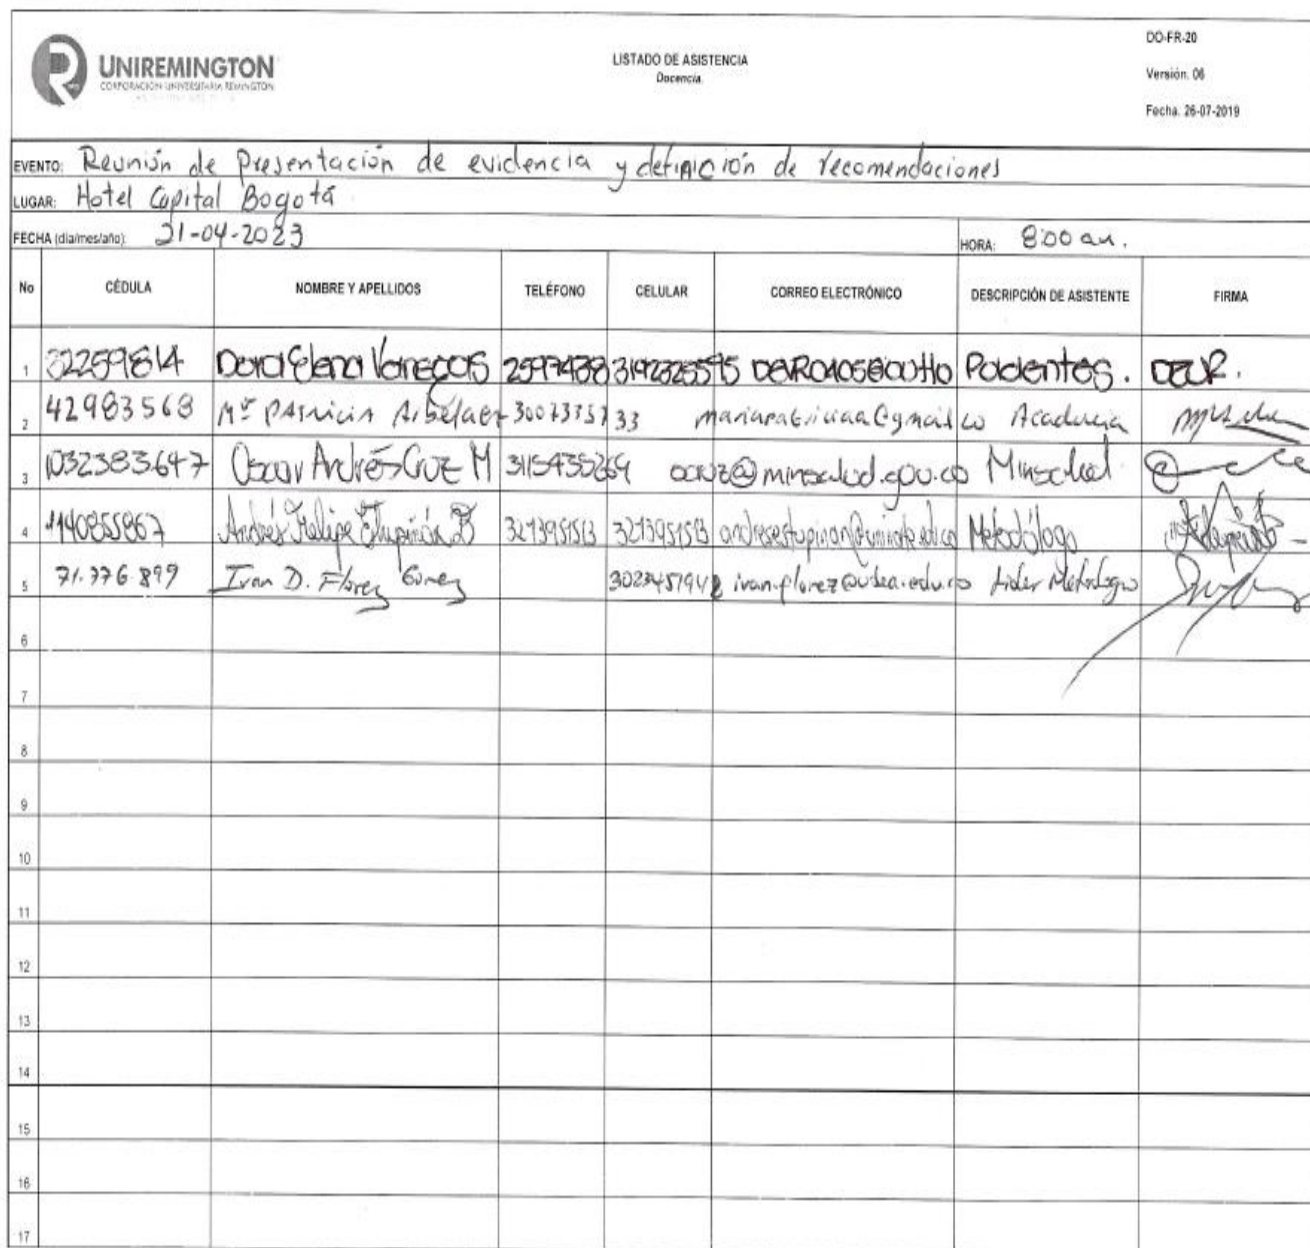 UNIREMINGTON
CORPORACIÓN UNIVERSITARIA REMINGTON
LISTADO DE ASISTENCIA
Docencia
DO-FR-20
Versión. 06
Fecha. 26-07-2019
EVENTO: Reunión de Presentación de evidencia y definición de recomendaciones
LUGAR: Hotel Capital Bogotá
FECHA (día/mes/año): 21-04-2023 HORA: 8:00 am.
No CÉDULA NOMBRE Y APELLIDOS TELÉFONO CELULAR CORREO ELECTRÓNICO DESCRIPCIÓN DE ASISTENTE FIRMA
1 32259814 Elena Vanegas 2597438 Pacientes.
2 42983568 Mª Patricia Arbeláez Academia
3 1032383647 Oscar Andrés Cruz M 3115435269 ocruz@minsalud.gov.co Minsalud
4 1140855867 Andrés Felipe Estupiñán B 3213951513 3213951513 Metodólogo
5 71.376.899 Ivan D. Florez Gomez ivan.florez@udea.edu.co Líder Metodólogo
6
7
8
9
10
11
12
13
14
15
16
17